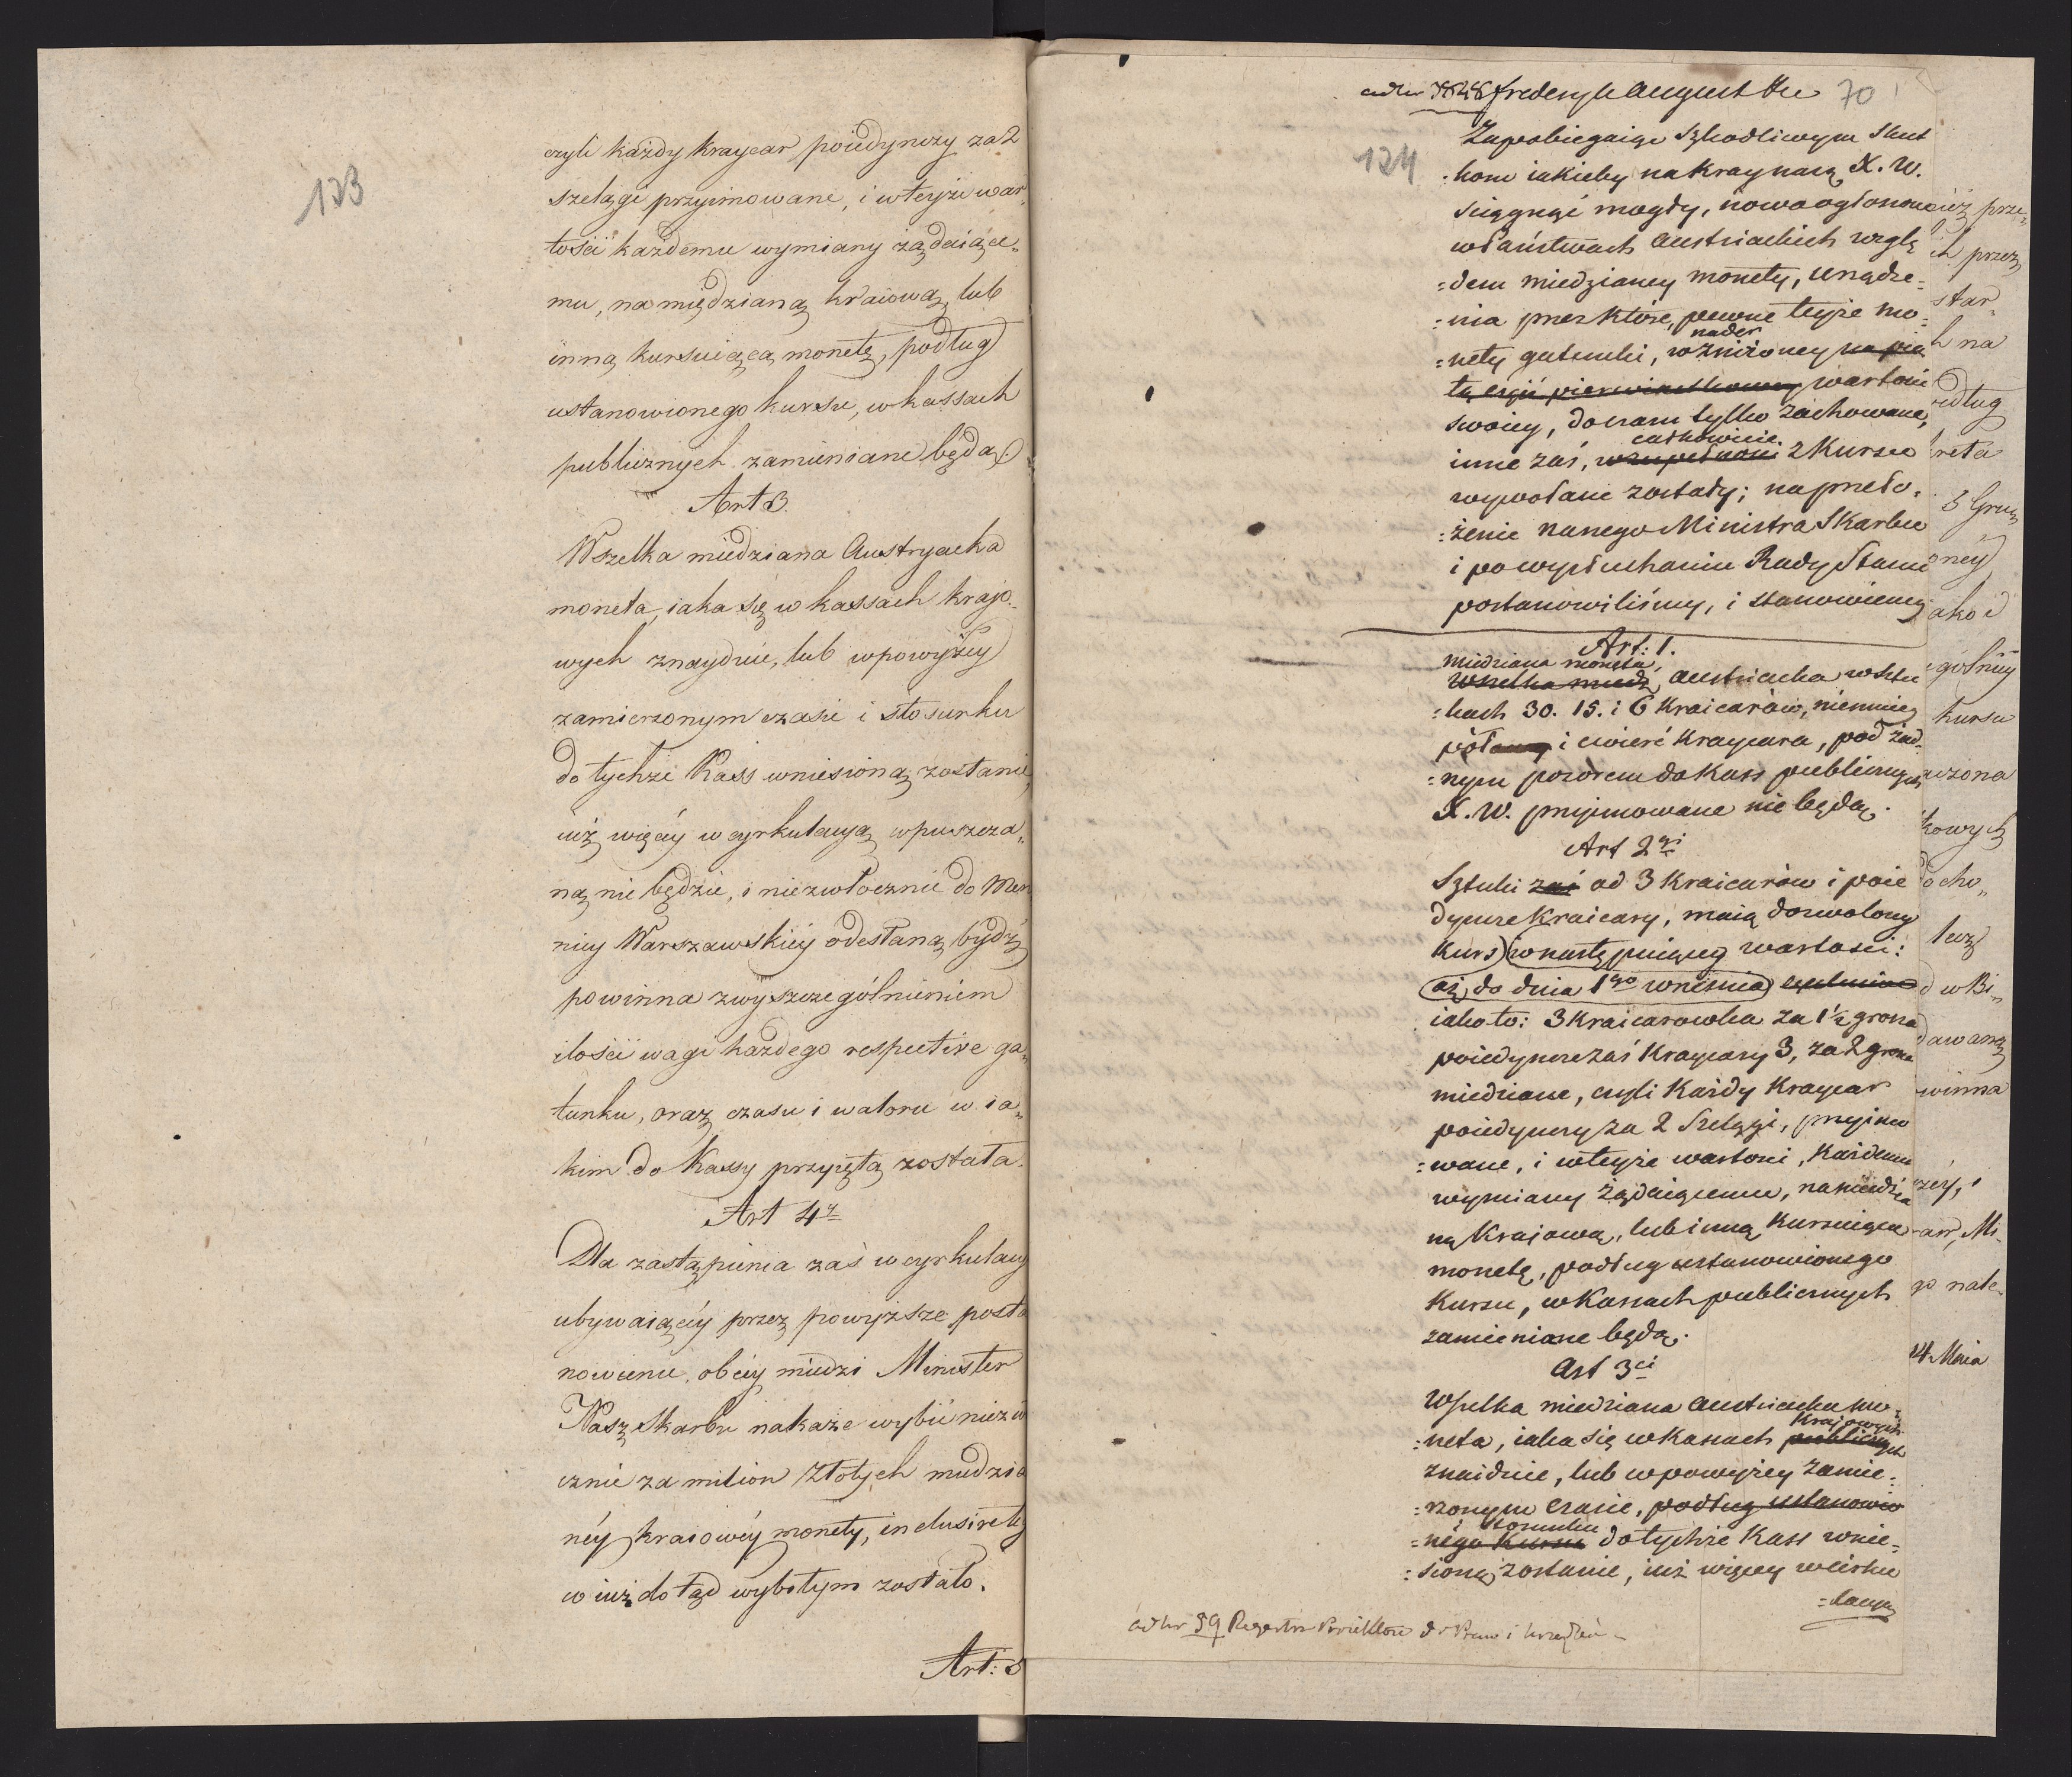 133
czyli każdy kraycar poiedynczy za 2
szelągi przyimowane, i w teyże war„
tości każdemu wymiany żądaiące„
mu, na międzianą kraiową, lub
inną kursuiącą monetę, podług
ustanowionego kursu, w kassach
publicznych zamieniane będą.
Art 3.
Wszelka miedziana Austryacka
moneta, iaka się w kassach krajo„
wych znayduie, lub w powyższey
zamierzonym czasie i stosunku
do tychże Kass wniesioną zostanie,
iuż więcéy w cyrkulacyą wpuszcza„
ną nie będzie, i niezwłocznie do Men
nicy Warszawskiéy odesłaną bydź
powinna z wyszczególnieniem
ilości wagi każdego respective ga„
tunku, oraz czasu i waloru w ia„
kim do Kassy przyiętą została.
Art 4y
Dla zastąpienia zaś w cyrkulacyi
ubywaiącéy przez powyższe posta
nowienie, obcéy miedzi Minister
Nasz Skarbu nakaże wybić niezwło
cznie za milion Złotych miedzia
néy kraiowéy monety, inclusive téy
co iuż dotąd wybitym zostało.
Art: 5
ad Nr 3848 Frederyk August etc 70
124
Zapobiegaiąc szkodliwym skut
:kom iakieby na kray nasz X. W.
ściągnąć mogły, nowo ogłoszone
w Państwach Austriackich wzglę
:dem miedzianey monety, urządze:
:nia przez które, pewne teyże mo:
nader
:nety gatunki, w zniżoney na pią
tą część pierwiastkowey wartości
swoiey, do czasu tylko zachowane,
całkowicie
inne zaś, w zupełności z Kursu
wywołane zostały; na przeło:
:żenie naszego Ministra Skarbu
i po wysłuchaniu Rady Stanu
postanowiliśmy, i stanowiemy
Art: 1.
miedziana moneta,
Wszelka miedź Austriacka w sztu
:kach 30. 15. i 6 Kraicarów, niemniey
pół i ćwierć Kraycara, pod żad:
:nym pozorem do Kass publicznych
X. W. przyimowane nie będą.
Art 2gi
Sztuki zaś od 3 Kraicarów i poie
dyncze Kraicary, maią dozwolony
Kurs w następuiącey wartości:
aż do dnia 1go września
iako to: 3 Kraicarowka za 1½ grosza
poiedyncze zaś Kraycary 3, za 2 grosze
miedziane, czyli Każdy Kraycar
poiedynczy za 2 Szelągi, przyimo
:wane, i w teyże wartości, Każdemu
wymiany żądaiącemu, na miedzia
ną Krajową, lub inną Kursuiącą
monetę, podług ustanowionego
Kursu, w Kassach publicznych
zamieniane będą.
Art 3ci
Wszelka miedziana Austriacka mo:
Krajowych
:neta, iaka się w Kassach publicznych
znaiduie, lub w powyżey zamie:
:rzonym czasie, podług ustanowio
i stosunku
:nego Kursu do tychże Kass wnie:
:sioną zostanie, iuż więcey w cirku
:lacyą
ad Nr 59 Regestru Proiektów do Praw i Urządzeń
iż prze„
ich przez
star„
h na
edług
reta
3 Grusz
oney
ako i
gólniey
kursu
szona
kowych
docho„
1 wz
d w Bi„
dawaną
winna
zéy, i
ar, Mi„
go nale„
14 Maia